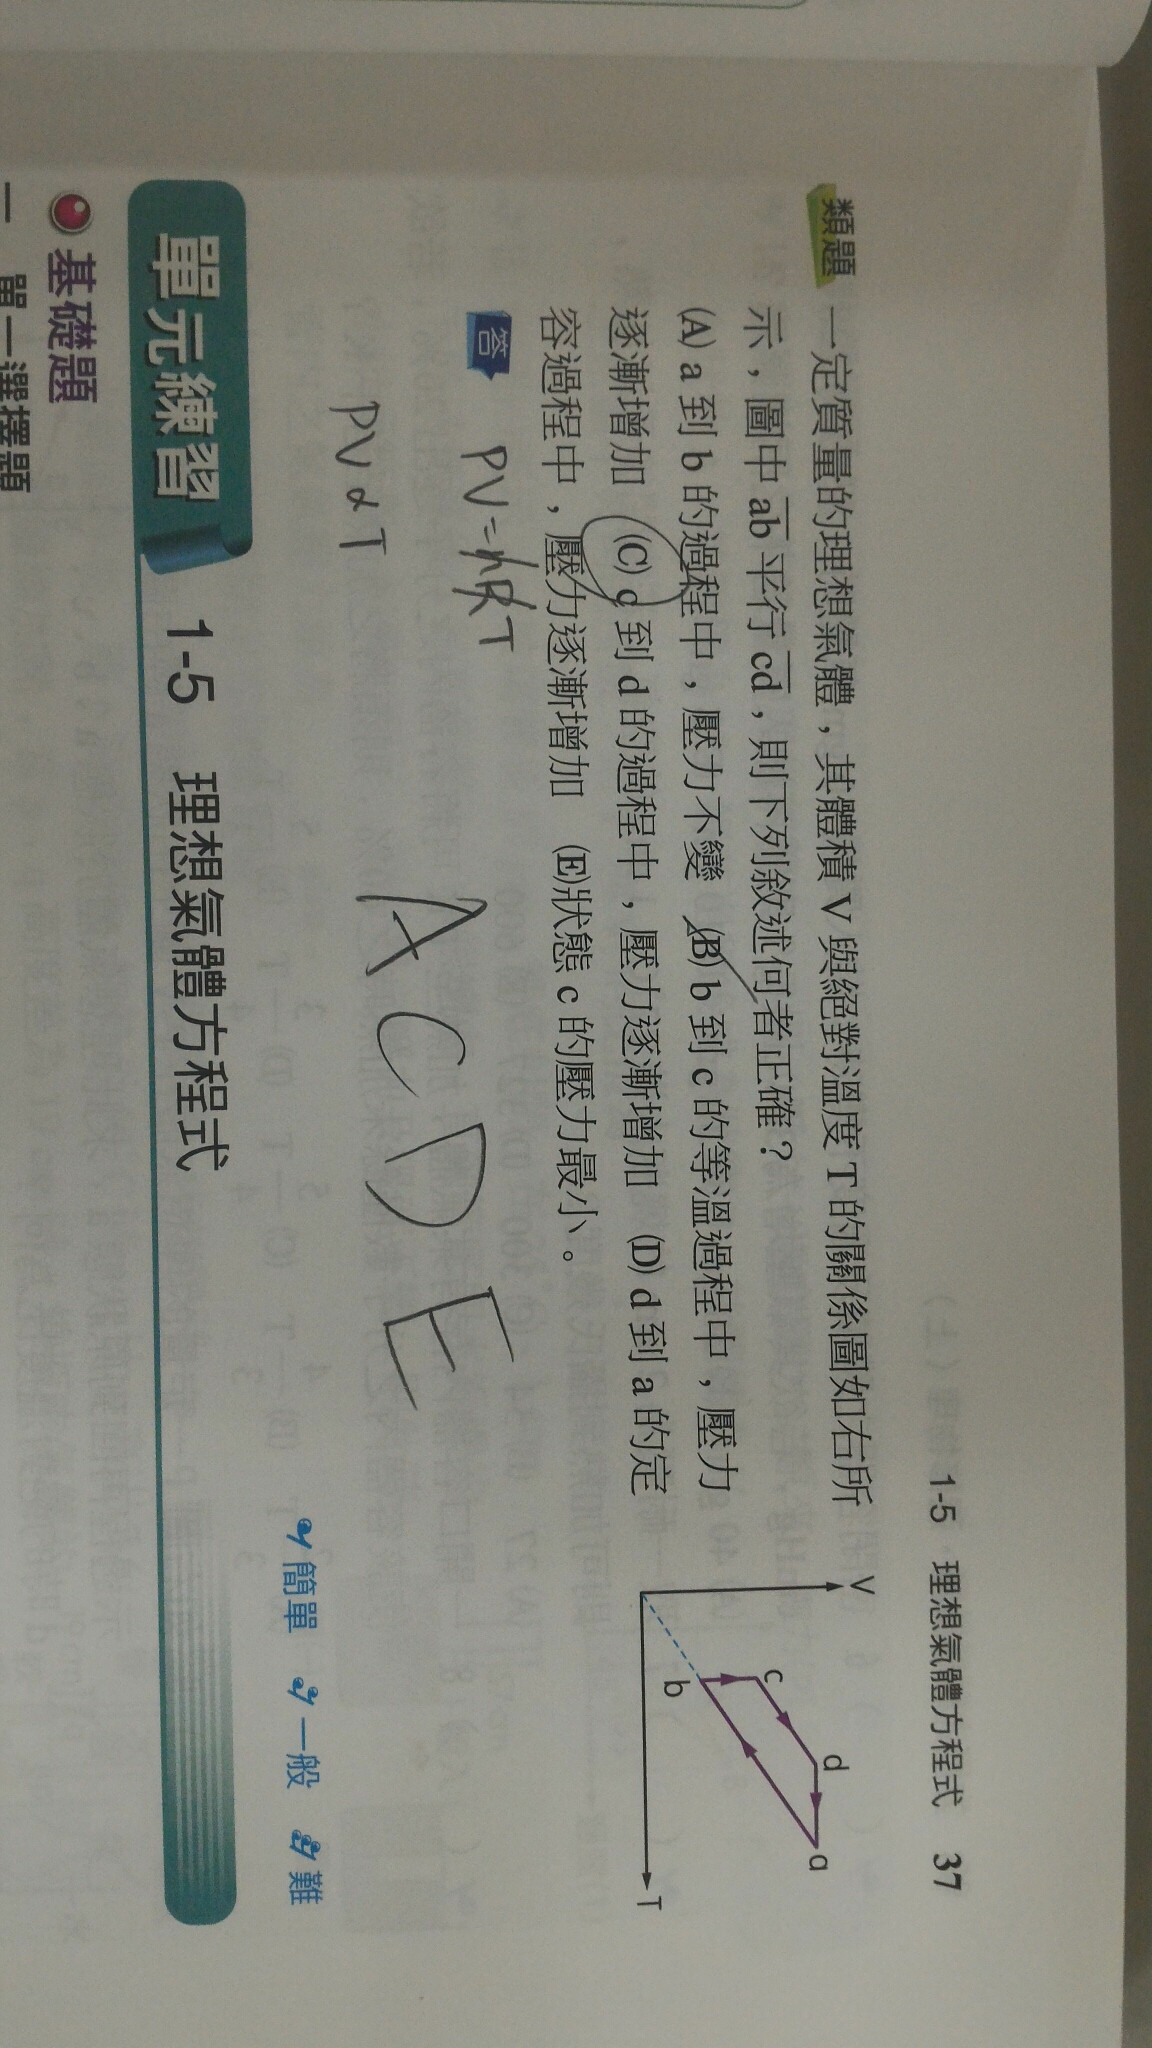 1-5 理想氣體方程式 37
類題 一定質量的理想氣體，其體積 V 與絕對溫度 T 的關係圖如右所
示，圖中 ab 平行 cd，則下列敘述何者正確？
(A) a 到 b 的過程中，壓力不變 (B) b 到 c 的等溫過程中，壓力
逐漸增加 (C) c 到 d 的過程中，壓力逐漸增加 (D) d 到 a 的定
容過程中，壓力逐漸增加 (E)狀態 c 的壓力最小。
V
c
d
b
a
T
答 PV=nRT
PV∝T
A C D E
簡單 一般 難
單元練習 1-5 理想氣體方程式
基礎題
一 單一選擇題